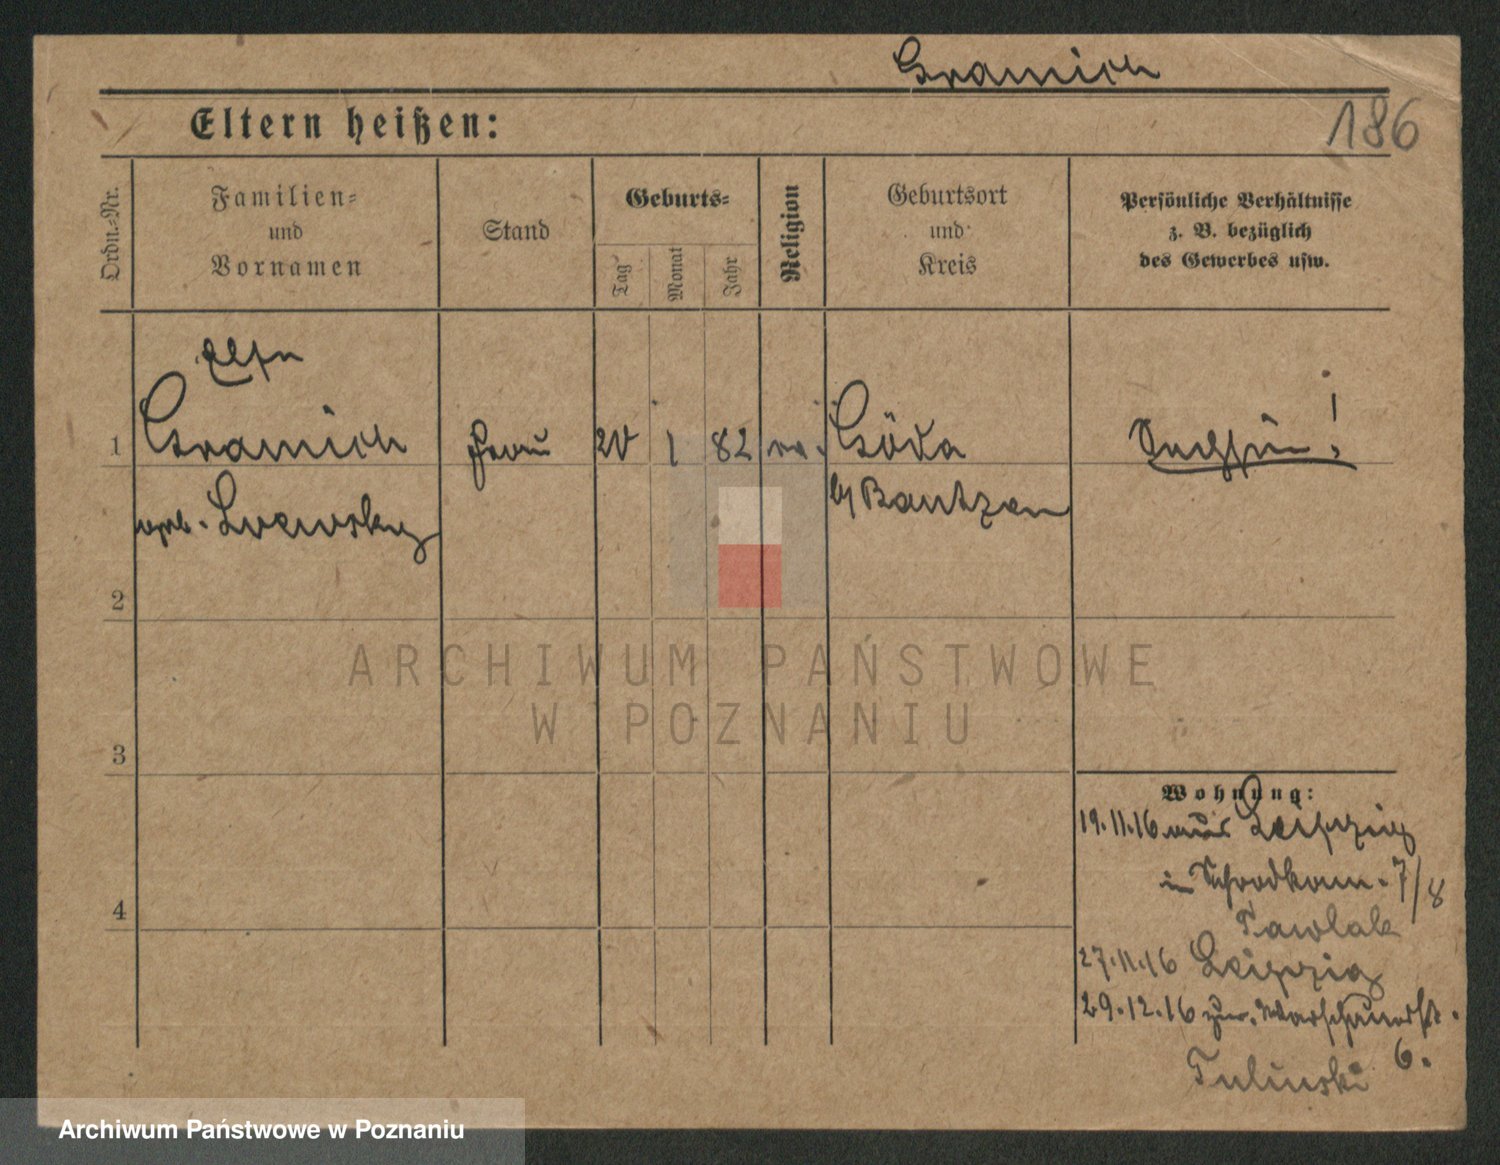 Gramich
186
Eltern heißen:
Ordn.-Nr.
Familien-
und
Vornamen
Stand
Geburts-
Tag
Monat
Jahr
Religion
Geburtsort
und
Kreis
Persönliche Verhältnisse
z. B. bezüglich
des Gewerbes usw.
Else
1 Gramich Frau 20 1 82 Göda Sachsen!
geb. b/ Bautzen
2
ARCHIWUM PAŃSTWOWE
W POZNANIU
3
Wohnung:
19.11.16 aus Leipzig
in 7/8
Pawlak
4
27.11.16 Leipzig
29.12.16 zur. Warschauerstr.
6.
Tulinski
Archiwum Państwowe w Poznaniu